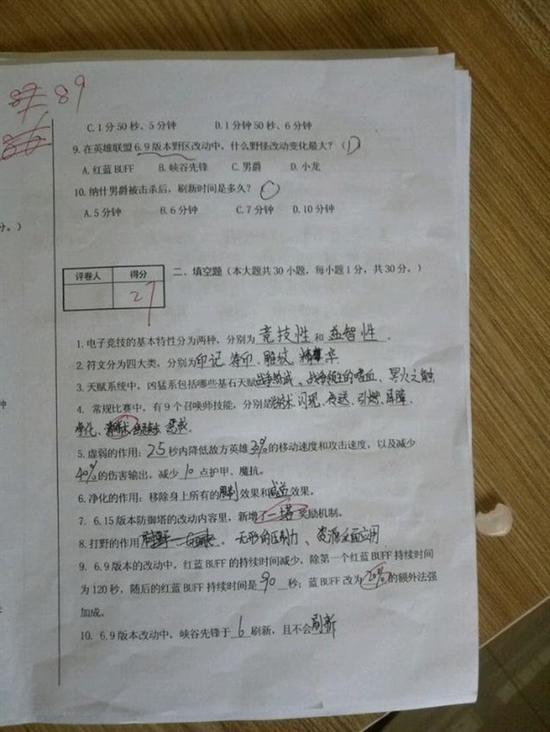 89
C.1分50秒、5分钟 D.1分钟50秒、6分钟
9.在英雄联盟6.9版本野区改动中，什么野怪改动变化最大？（D）
A.红蓝BUFF B.峡谷先锋 C.男爵 D.小龙
10.纳什男爵被击杀后，刷新时间是多久？（C）
A.5分钟 B.6分钟 C.7分钟 D.10分钟
分。）
评卷人 得分
27
二、填空题（本大题共30小题，每小题1分，共30分。）
1.电子竞技的基本特性分为两种，分别为竞技性和益智性。
2.符文分为四大类，分别为印记、符印、雕纹、精华
3.天赋系统中，凶猛系包括哪些基石天赋战争热诚、战争领主的嗜血、冥火之触
4. 常规比赛中，有9个召唤师技能，分别是治疗术、闪现、传送、引燃、屏障、
净化、
5.虚弱的作用：2.5秒内降低敌方英雄30%的移动速度和攻击速度，以及减少
40%的伤害输出，减少10点护甲、魔抗。
6.净化的作用：移除身上所有的限制效果和减益效果。
7. 6.15版本防御塔的改动内容里，新增了一塔奖励机制。
8.打野的作用 无形的压制力、资源全面应用
9. 6.9版本的改动中，红蓝BUFF的持续时间减少，除第一个红蓝BUFF持续时间
为120秒，随后的红蓝BUFF持续时间是90秒；蓝BUFF改为 的额外法强
加成。
10. 6.9版本改动中，峡谷先锋于6刷新，且不会刷新